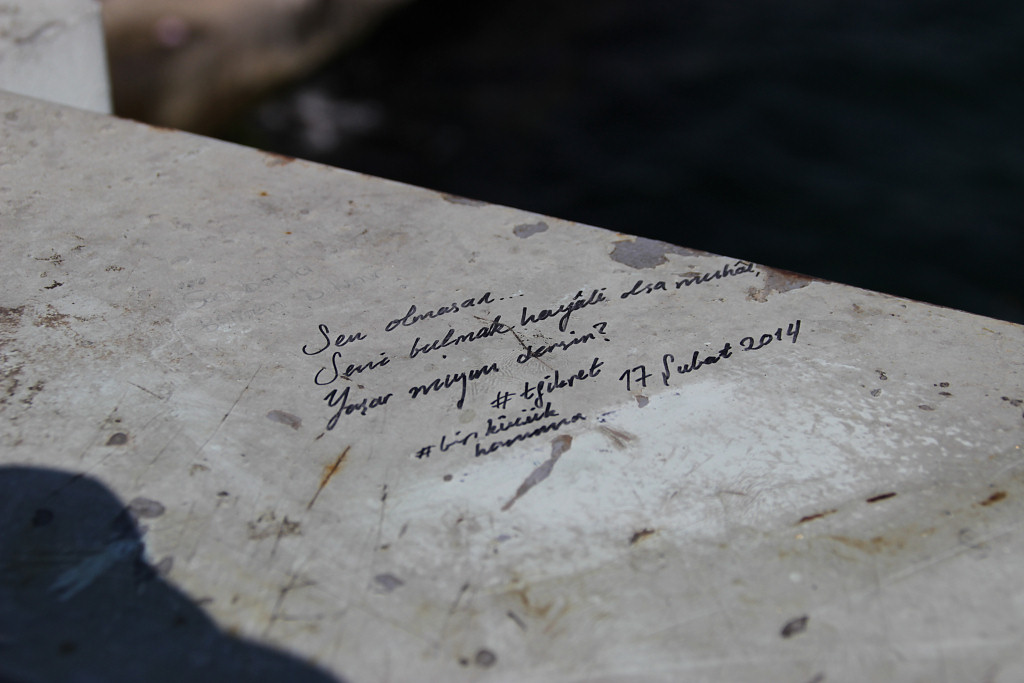 Sen olmasan...
Seni bulmak hayâli olsa muhâl,
Yaşar mıyım dersin?
#tgikret 17 Şubat 2014
#bir küçük
hamama